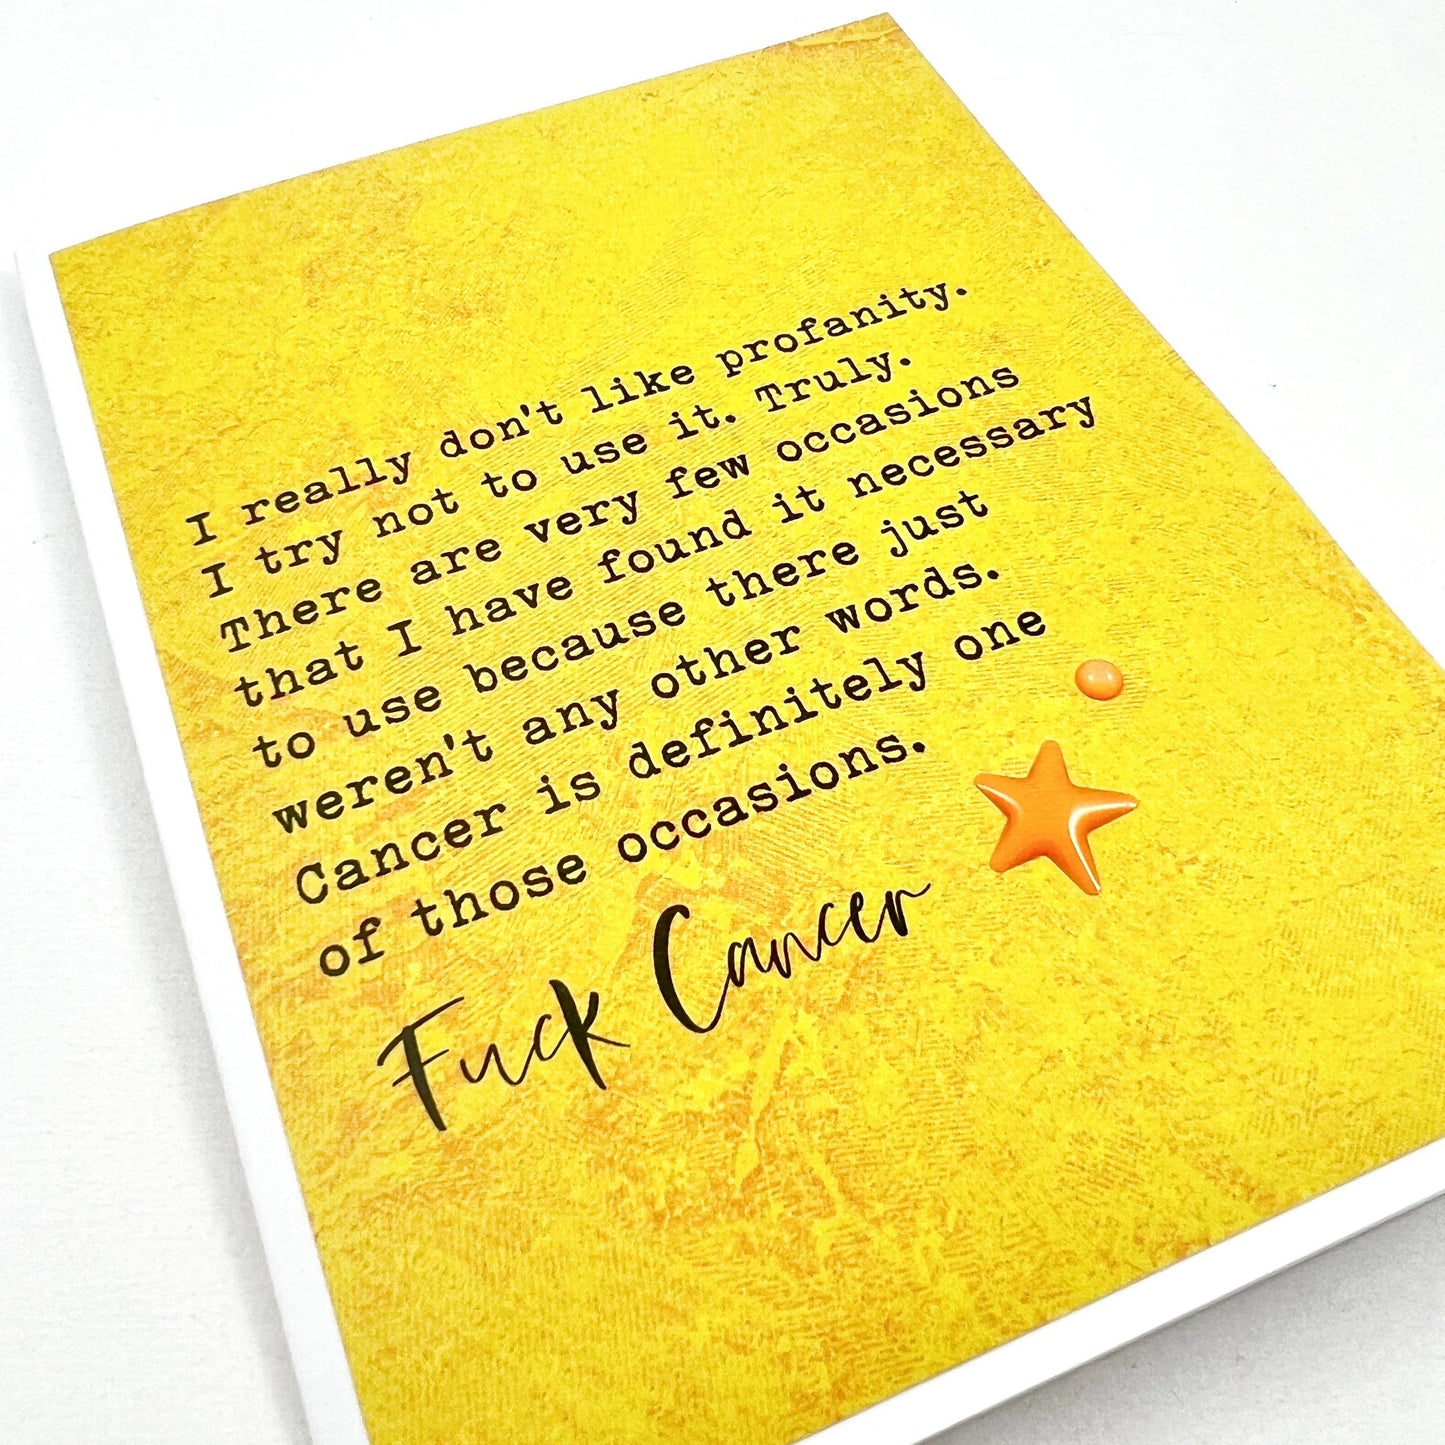 I really don't like profanity.
I try not to use it. Truly.
There are very few occasions
that I have found it necessary
to use because there just
weren't any other words.
Cancer is definitely one
of those occasions.
Fuck Cancer